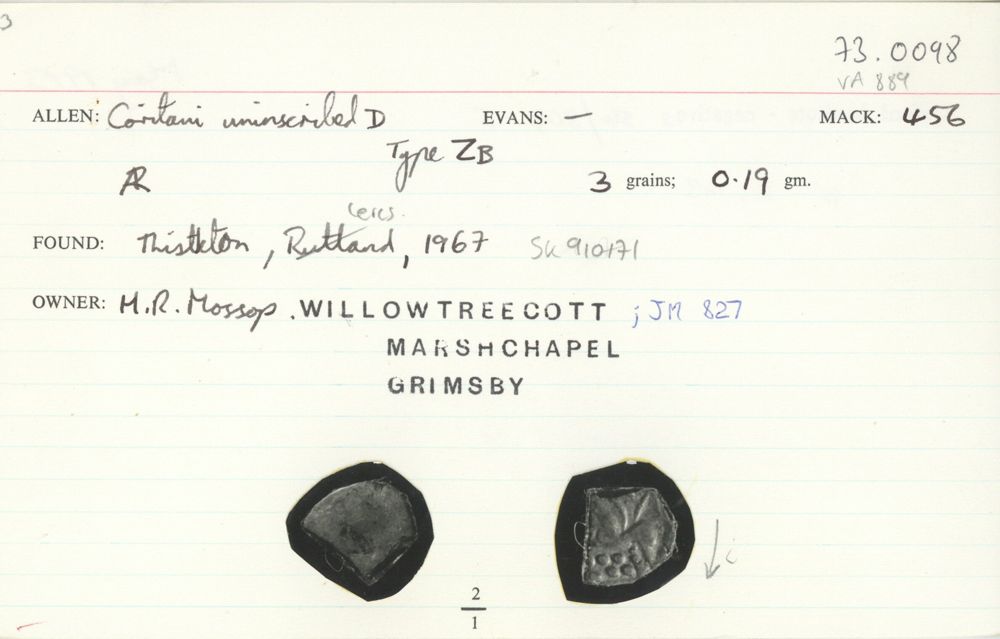 3
73.0098
VA 889
ALLEN: Coritani uninscribed D EVANS: — MACK: 456
Type ZB
AR 3 grains; 0.19 gm.
Leics.
FOUND: Thistleton, Rutland, 1967 SK 910171
OWNER: H.R. Mossop. WILLOWTREECOTT ; JM 827
MARSHCHAPEL
GRIMSBY
2
1